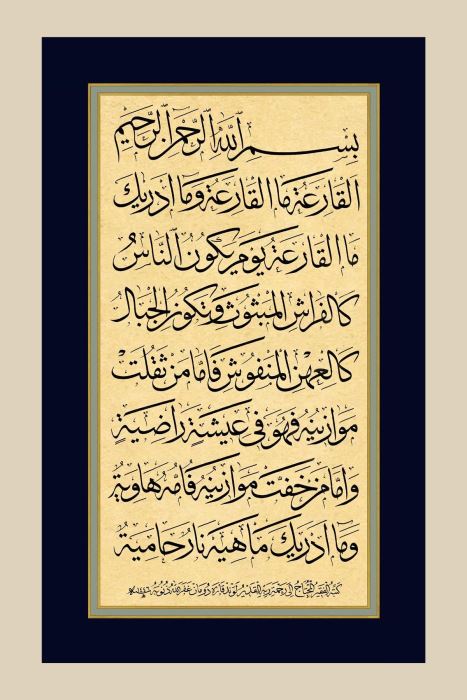 بِسْمِ اللّٰهِ الرَّحْمٰنِ الرَّحِيمِ
اَلْقَارِعَةُ مَا الْقَارِعَةُ وَمَا اَدْرٰيكَ
مَا الْقَارِعَةُ يَوْمَ يَكُونُ النَّاسُ
كَالْفَرَاشِ الْمَبْثُوثِ وَتَكُونُ الْجِبَالُ
كَالْعِهْنِ الْمَنْفُوشِ فَاَمَّا مَنْ ثَقُلَتْ
مَوَازِينُهُ فَهُوَ فِى عِيشَةٍ رَاضِيَةٍ
وَاَمَّا مَنْ خَفَّتْ مَوَازِينُهُ فَاُمُّهُ هَاوِيَةٌ
وَمَا اَدْرٰيكَ مَاهِيَهْ نَارٌ حَامِيَةٌ
كتبه الفقير المحتاج الى رحمة ربه القدير